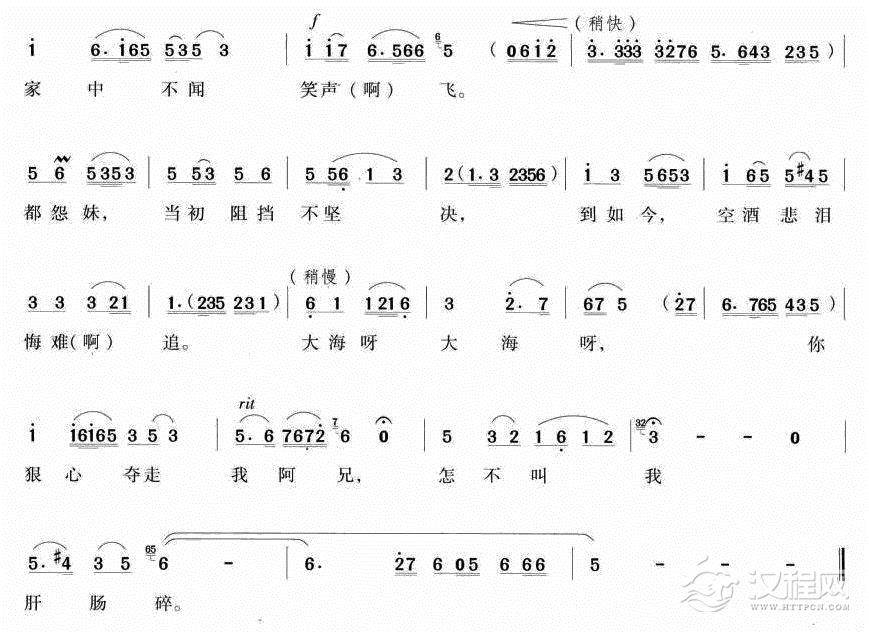 f （稍快）
i 6. i65 535 3 | i i7 6. 566 6 5 （ 06i2 | 3. 333 3276 5. 643 235 ） |
家 中 不 闻 笑 声（啊） 飞。
5 6 5353 | 5 53 5 6 | 5 56 1 3 | 2（1. 3 2356） | i 3 5653 | i 65 5#45 |
都 怨 妹， 当 初 阻 挡 不 坚 决， 到 如 今， 空 酒 悲 泪
（稍慢）
3 3 3 21 | 1.（235 231） | 6 1 1216 | 3 2. 7 | 67 5 （27 | 6. 765 435） |
悔 难（啊） 追。 大 海 呀 大 海 呀， 你
rit
i i6i65 3 5 3 | 5. 6 7672 7 6 0 | 5 3 2 1 6 1 2 | 32 3 - - 0 |
狠 心 夺 走 我 阿 兄， 怎 不 叫 我
5. #4 3 5 65 6 - | 6. 27 6 05 6 66 | 5 - - - ‖
肝 肠 碎。
汉程网
WWW.HTTPCN.COM